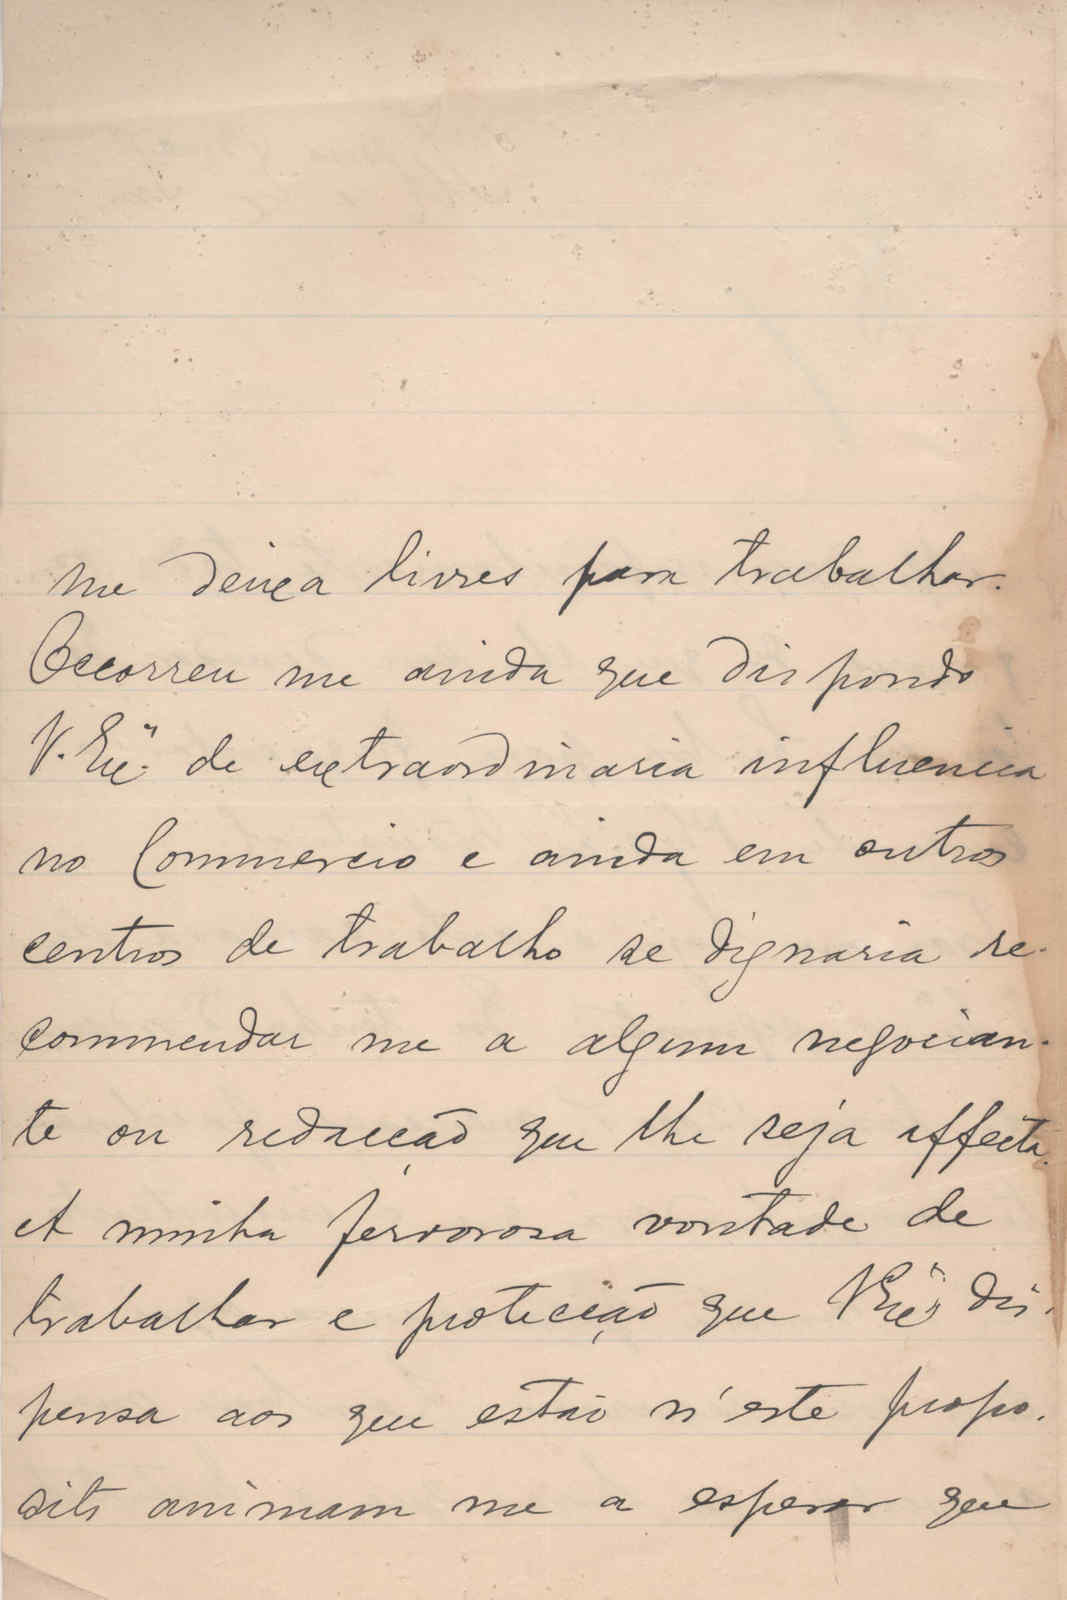 me deixa livres para trabalhar.
Occorreu me ainda que dispondo
V. Exª. de extraordinaria influencia
no Commercio e ainda em outros
centros de trabalho se dignaria re-
commendar me a algum negocian-
te ou redacção que lhe seja affecta.
A minha fervorosa vontade de
trabalhar e protecção que V Exª dis-
pensa aos que estão n'este propo-
sito animam me a esperar que